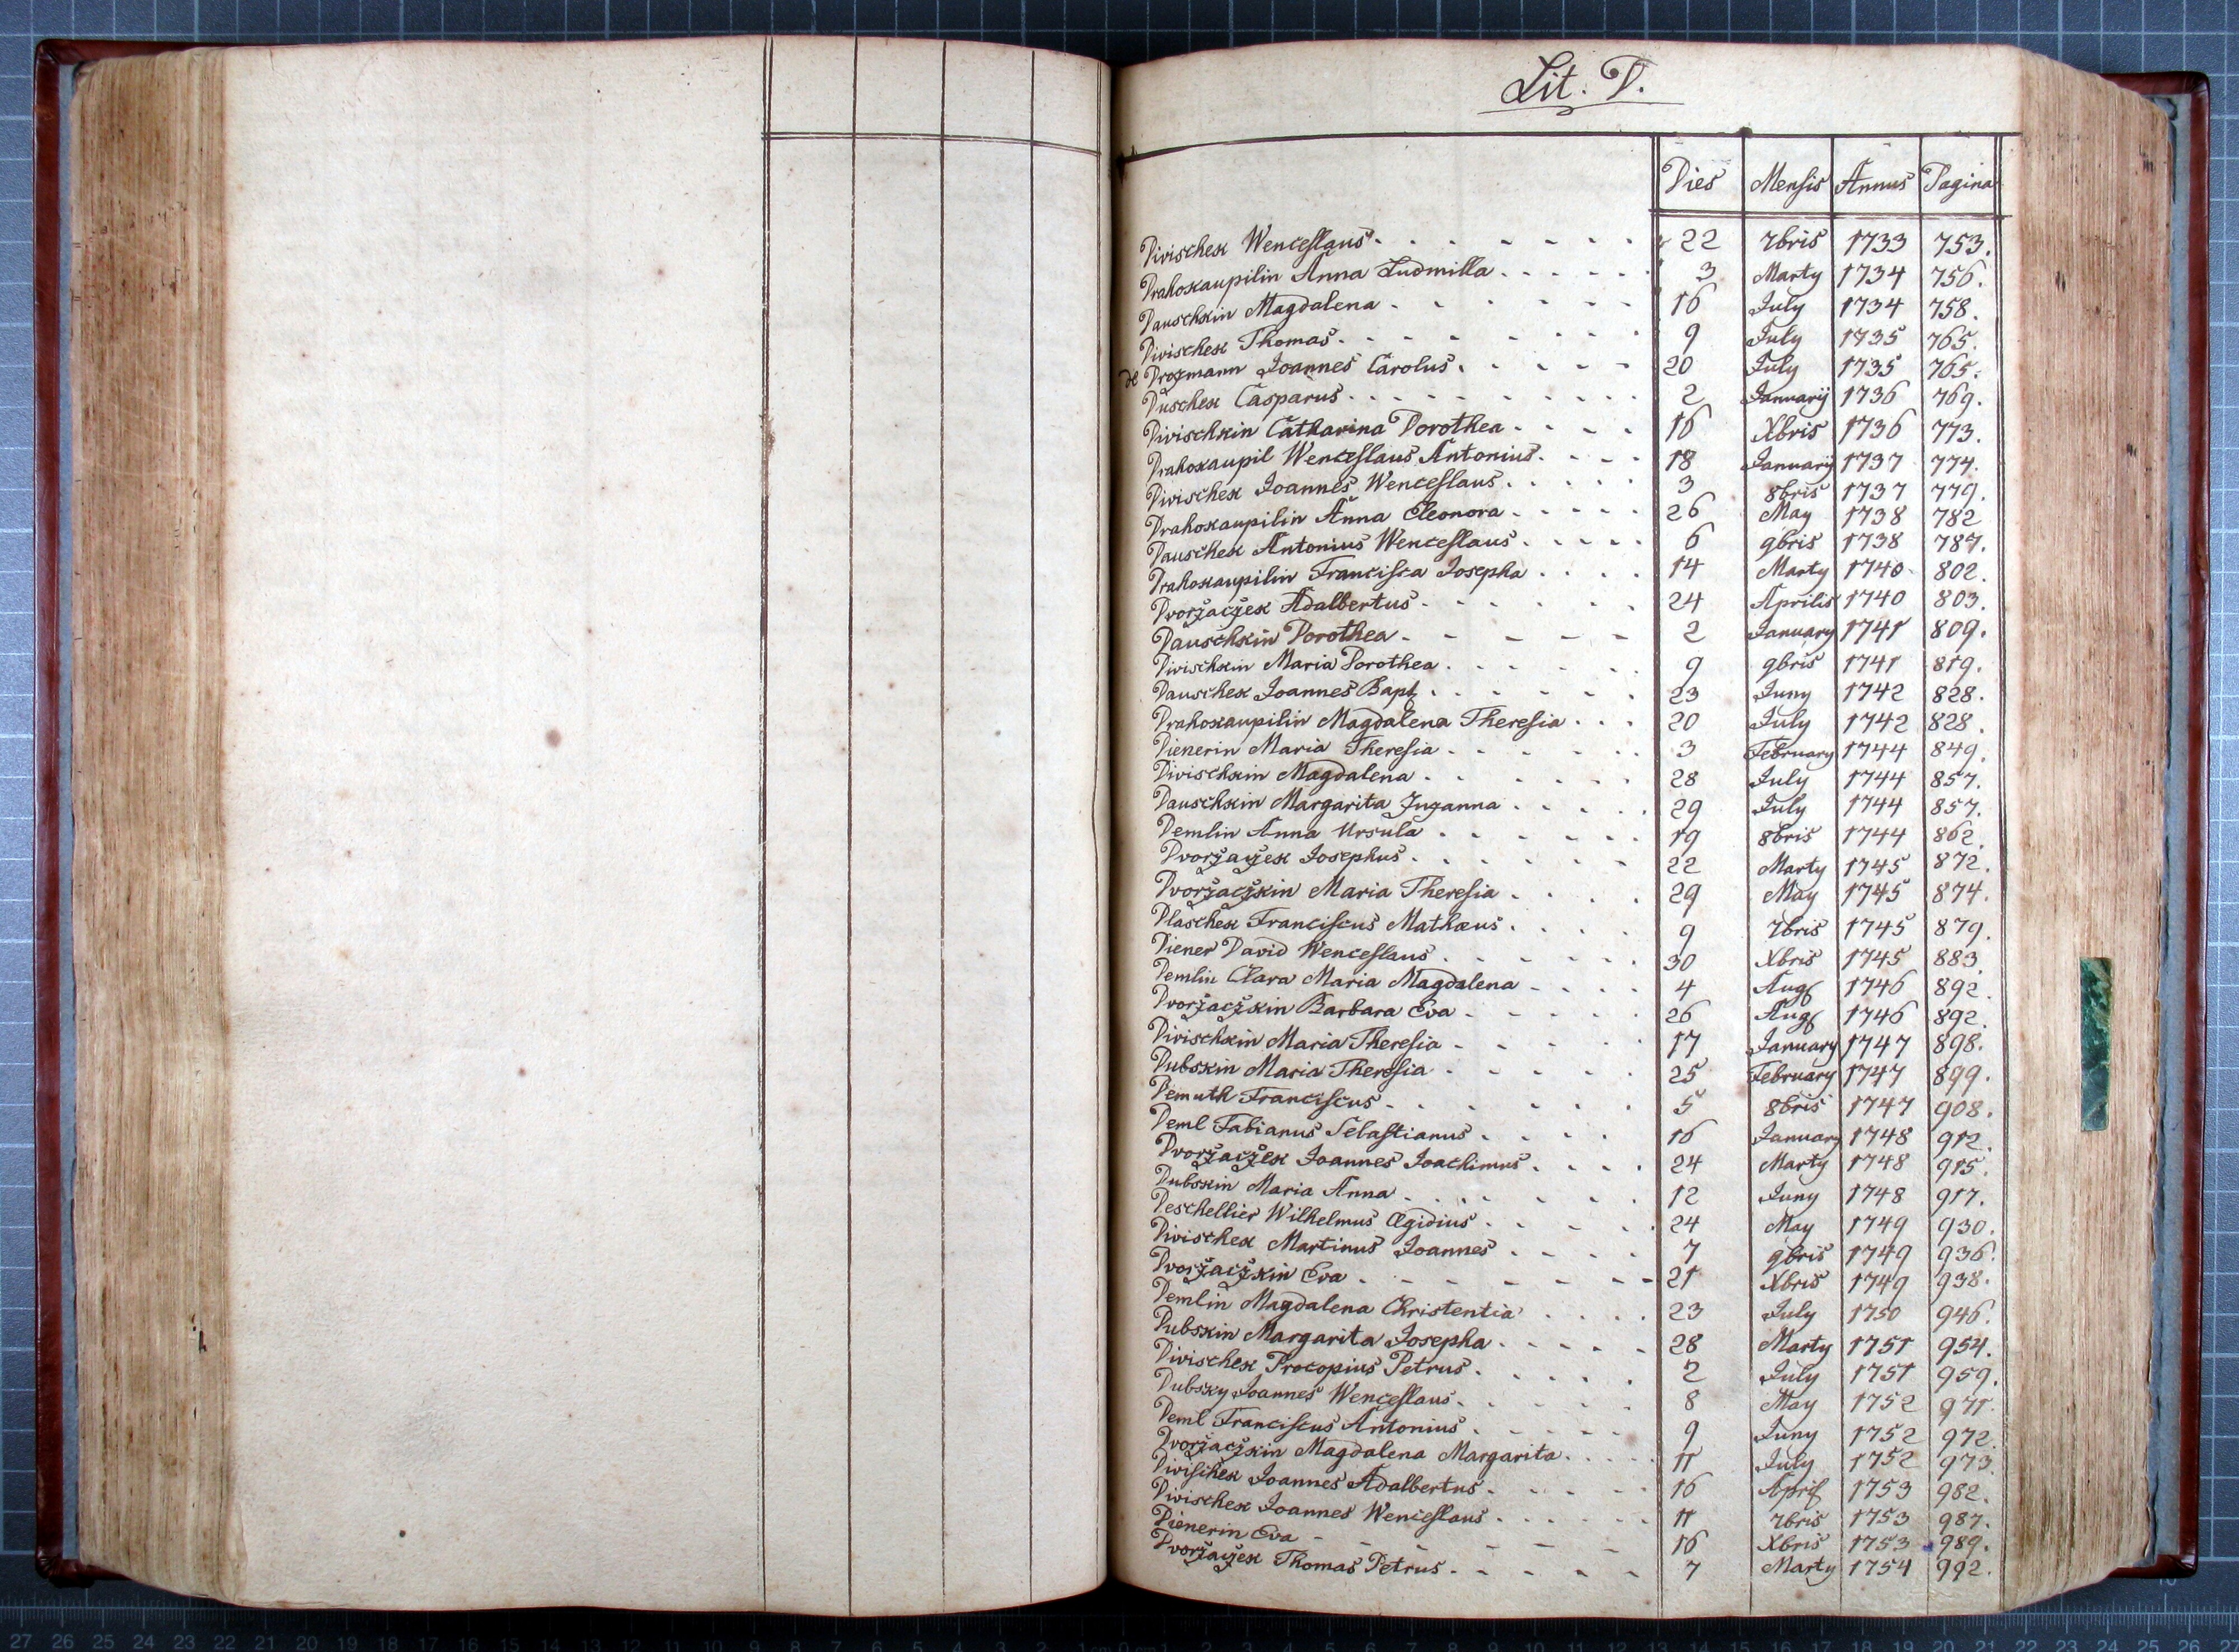 Lit. D.
Dies Mensis Annus Pagina
Divischek Wenceslaus 22 7bris 1733 753.
Drahokaupilin Anna Ludmilla 3 Marty 1734 756.
Dauschkin Magdalena 16 July 1734 758.
Divischek Thomas 9 July 1735 765.
de Drozmann Joannes Carolus 20 July 1735 765.
Duschek Casparus 2 January 1736 769.
Divischkin Catharina Dorothea 16 Xbris 1736 773.
Drahokaupil Wenceslaus Antonius 18 January 1737 774.
Divischek Joannes Wenceslaus 3 8bris 1737 779.
Drahokaupilin Anna Eleonora 26 May 1738 782
Dauschek Antonius Wenceslaus 6 9bris 1738 787.
Drahokaupilin Francisca Josepha 14 Marty 1740 802.
Dvoržaczek Adalbertus 24 Aprilis 1740 803.
Dauschkin Dorothea 2 January 1741 809.
Divischkin Maria Dorothea 9 9bris 1741 819.
Dauschek Joannes Bapt 23 Juny 1742 828.
Drahokaupilin Magdalena Theresia 20 July 1742 828.
Dienerin Maria Theresia 3 February 1744 849.
Divischkin Magdalena 28 July 1744 857.
Dauschkin Margarita Zuzanna 29 July 1744 857.
Demlin Anna Ursula 19 8bris 1744 862.
Dvoržaczek Josephus 22 Marty 1745 872.
Dvoržaczkin Maria Theresia 29 May 1745 874.
Dlaschek Franciscus Mathæus 9 7bris 1745 879.
Diener David Wenceslaus 30 Xbris 1745 883.
Demlin Clara Maria Magdalena 4 Aug 1746 892.
Dvoržaczkin Barbara Eva 26 Aug 1746 892.
Divischkin Maria Theresia 17 January 1747 898.
Dubskin Maria Theresia 25 February 1747 899.
Demuth Franciscus 5 8bris 1747 908.
Deml Fabianus Sebastianus 16 January 1748 912.
Dvoržaczek Joannes Joachimus 24 Marty 1748 915.
Dubskin Maria Anna 12 Juny 1748 917.
Deschellier Wilhelmus Ægidius 24 May 1749 930.
Divischek Martinus Joannes 7 9bris 1749 936.
Dvoržaczkin Eva 21 Xbris 1749 938.
Demlin Magdalena Christentia 23 July 1750 946.
Dubskin Margarita Josepha 28 Marty 1751 954.
Divischek Procopius Petrus 2 July 1751 959.
Dubsky Joannes Wenceslaus 8 May 1752 971.
Deml Franciscus Antonius 9 Juny 1752 972.
Dvoržaczkin Magdalena Margarita 11 July 1752 973.
Divischek Joannes Adalbertus 16 April 1753 982.
Divischek Joannes Wenceslaus 11 7bris 1753 987.
Dienerin Eva 16 Xbris 1753 989.
Dvoržaczek Thomas Petrus 7 Marty 1754 992.
27 26 25 24 23 22 21 20 19 18 17 16 15 14 13 12 11 10 9 8 7 6 5 4 3 2 1 cm 0 cm 1 2 3 4 5 6 7 8 9 10 11 12 13 14 15 16 17 18 19 20 21 22